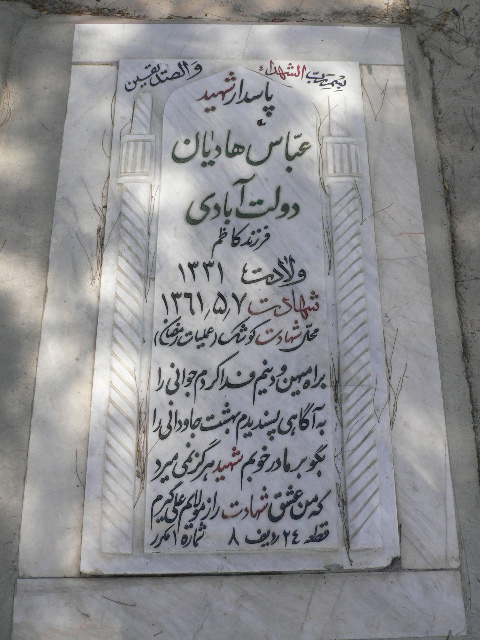 بسم رب الشهداء والصدیقین
پاسدار شهید
عبّاس هادیان
دولت آبادی
فرزند کاظم
ولادت ۱۳۳۱
شهادت ۱۳۶۱٫۵٫۷
محل شهادت کوشک (عملیات رمضان)
براه میهن و دینم فدا کردم جوانی را
به آگاهی پسندیدم بهشت جاودانی را
بگو بر مادر خوبم شهید هرگز نمی میرد
که من عشق شهادت را ز مولایم علی گیرم
قطعه ۲۴ ردیف ۸ شماره ۱ مکرر